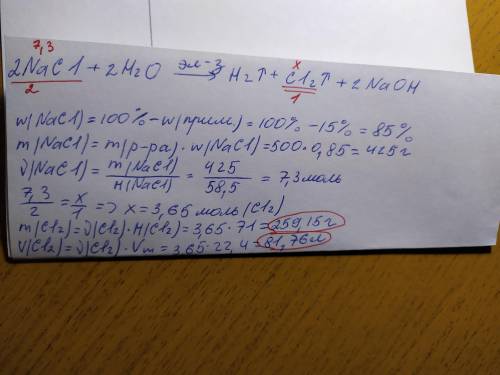 7,3 x
2NaCl + 2H₂O эл-з → H₂↑ + Cl₂↑ + 2NaOH
2 1
w(NaCl) = 100% - w(прим.) = 100% - 15% = 85%
m(NaCl) = m(р-ра) · w(NaCl) = 500 · 0,85 = 425г
ν(NaCl) = m(NaCl)/M(NaCl) = 425/58,5 = 7,3 моль
7,3/2 = x/1 => x = 3,65 моль (Cl₂)
m(Cl₂) = ν(Cl₂) · M(Cl₂) = 3,65 · 71 = 259,15г
V(Cl₂) = ν(Cl₂) · Vm = 3,65 · 22,4 = 81,76л